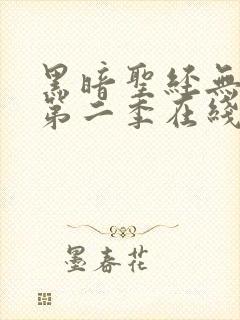 黑暗聖經無
第二季在綫
墨春花